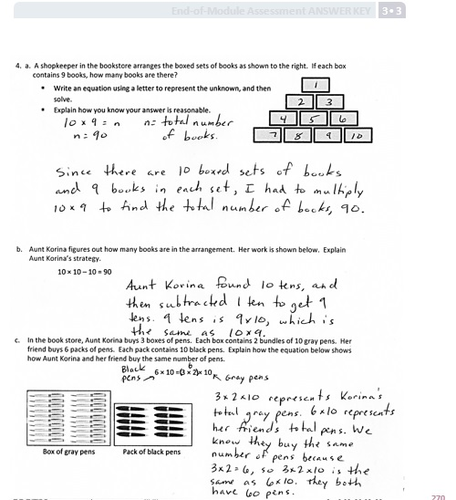 End-of-Module Assessment ANSWER KEY 3•3
4. a. A shopkeeper in the bookstore arranges the boxed sets of books as shown to the right. If each box
contains 9 books, how many books are there?
• Write an equation using a letter to represent the unknown, and then
solve.
• Explain how you know your answer is reasonable.
1
2 3
4 5 6
7 8 9 10
10 x 9 = n n = total number
n = 90 of books.
Since there are 10 boxed sets of books
and 9 books in each set, I had to multiply
10 x 9 to find the total number of books, 90.
b. Aunt Korina figures out how many books are in the arrangement. Her work is shown below. Explain
Aunt Korina's strategy.
10 × 10 – 10 = 90
Aunt Korina found 10 tens, and
then subtracted 1 ten to get 9
tens. 9 tens is 9x10, which is
the same as 10x9.
c. In the book store, Aunt Korina buys 3 boxes of pens. Each box contains 2 bundles of 10 gray pens. Her
friend buys 6 packs of pens. Each pack contains 10 black pens. Explain how the equation below shows
how Aunt Korina and her friend buy the same number of pens.
6
Black
pens 6 × 10 = (3 × 2) × 10 Gray pens
3 x 2 x 10 represents Korina's
total gray pens. 6 x 10 represents
her friends total pens. We
know they buy the same
number of pens because
3x2=6, so 3x2x10 is the
same as 6x10. they both
have 60 pens.
Box of gray pens Pack of black pens
270